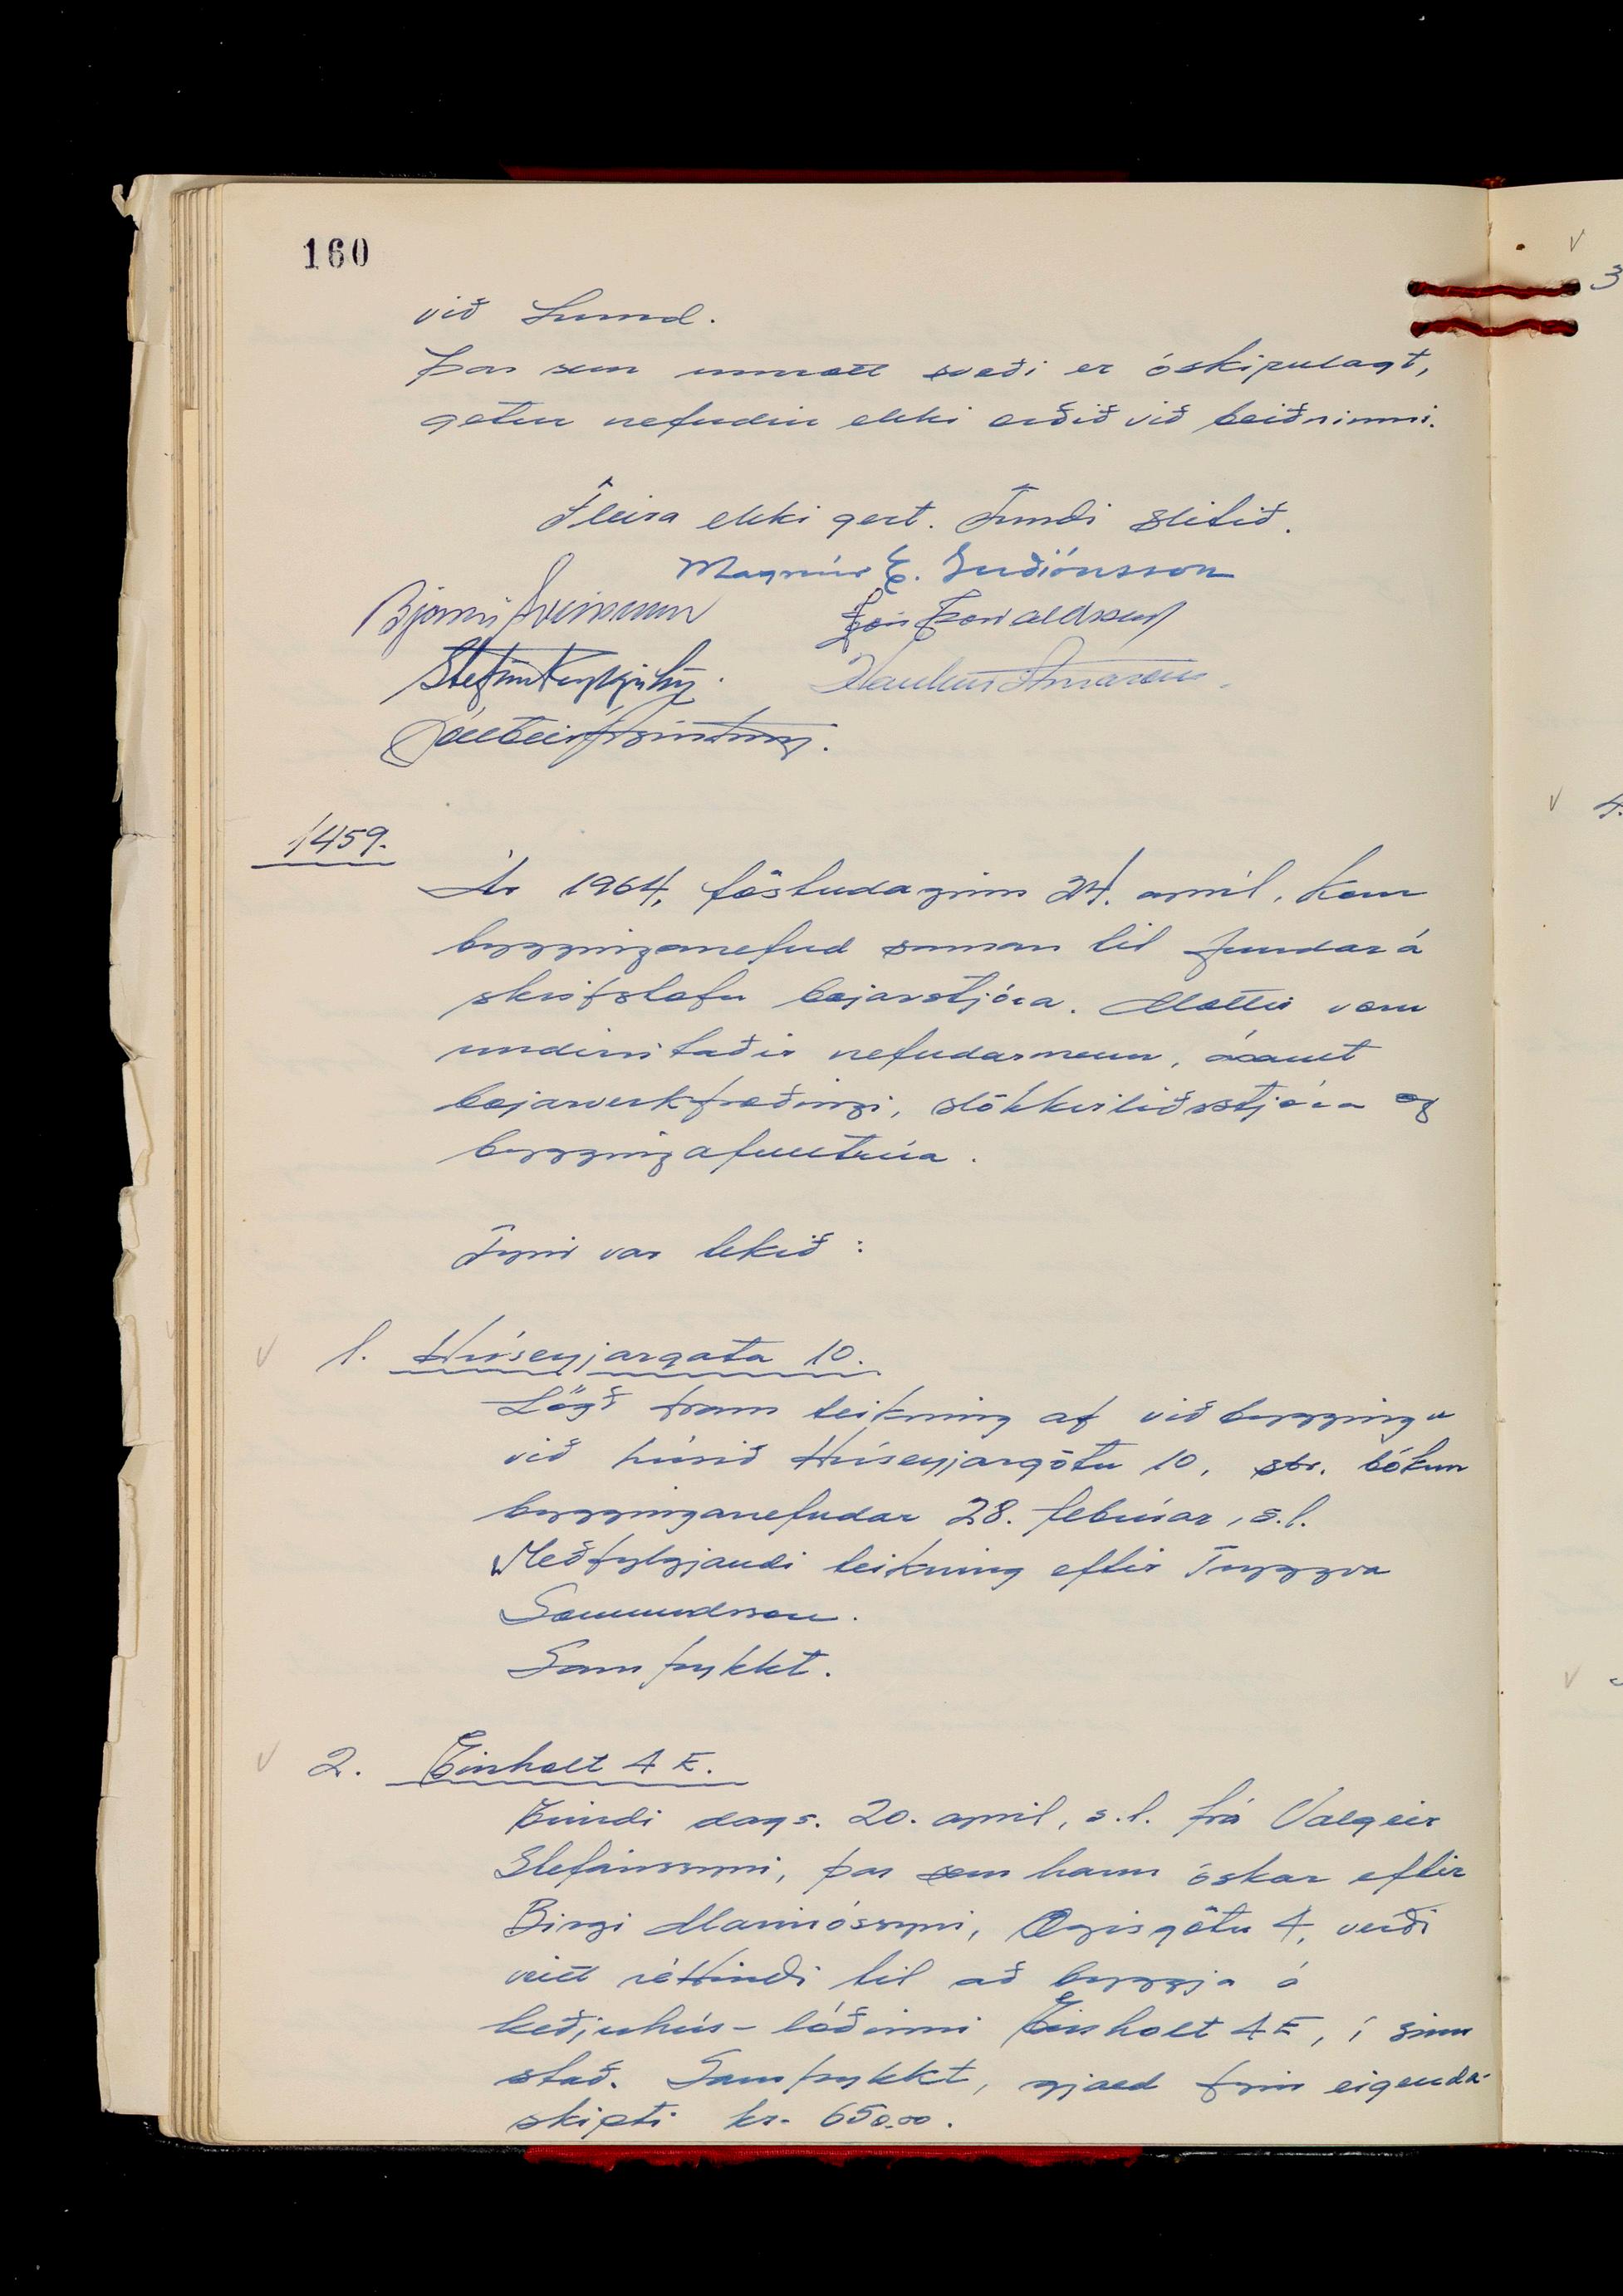 160
við Lund.
Þar sem umrætt svæði er óskipulagt,
getur nefndin ekki orðið við beiðninni.
Fleira ekki gert. Fundi slitið.
Magnús E. Guðjónsson
Bjarni Sveinsson
Jón Þorvaldsson
Stefán Reykjalín.
Haukur Árnason.
1459.
Ár 1964, föstudaginn 24. apríl, kom
bygginganefnd saman til fundar á
skrifstofu bæjarstjóra. Mættir voru
undirritaðir nefndarmenn, ásamt
bæjarverkfræðingi, slökkviliðsstjóra og
byggingafulltrúa.
Fyrir var tekið:
1. Hríseyjargata 10.
Lögð fram teikning af viðbyggingu
við húsið Hríseyjargötu 10, sbr. bókun
bygginganefndar 28. febrúar, s.l.
Meðfylgjandi teikning eftir Tryggva
Sæmundsson.
Samþykkt.
2. Einholt 4 E.
Erindi dags. 20. apríl, s.l. frá Valgeir
Stefánssyni, þar sem hann óskar eftir
Birgi Marinóssyni, Ægisgötu 4, verði
veitt réttindi til að byggja á
keðjuhús-lóðinni Einholt 4 E, í sinn
stað. Samþykkt, gjald fyrir eigenda-
skipti kr. 650.00.
3
4.